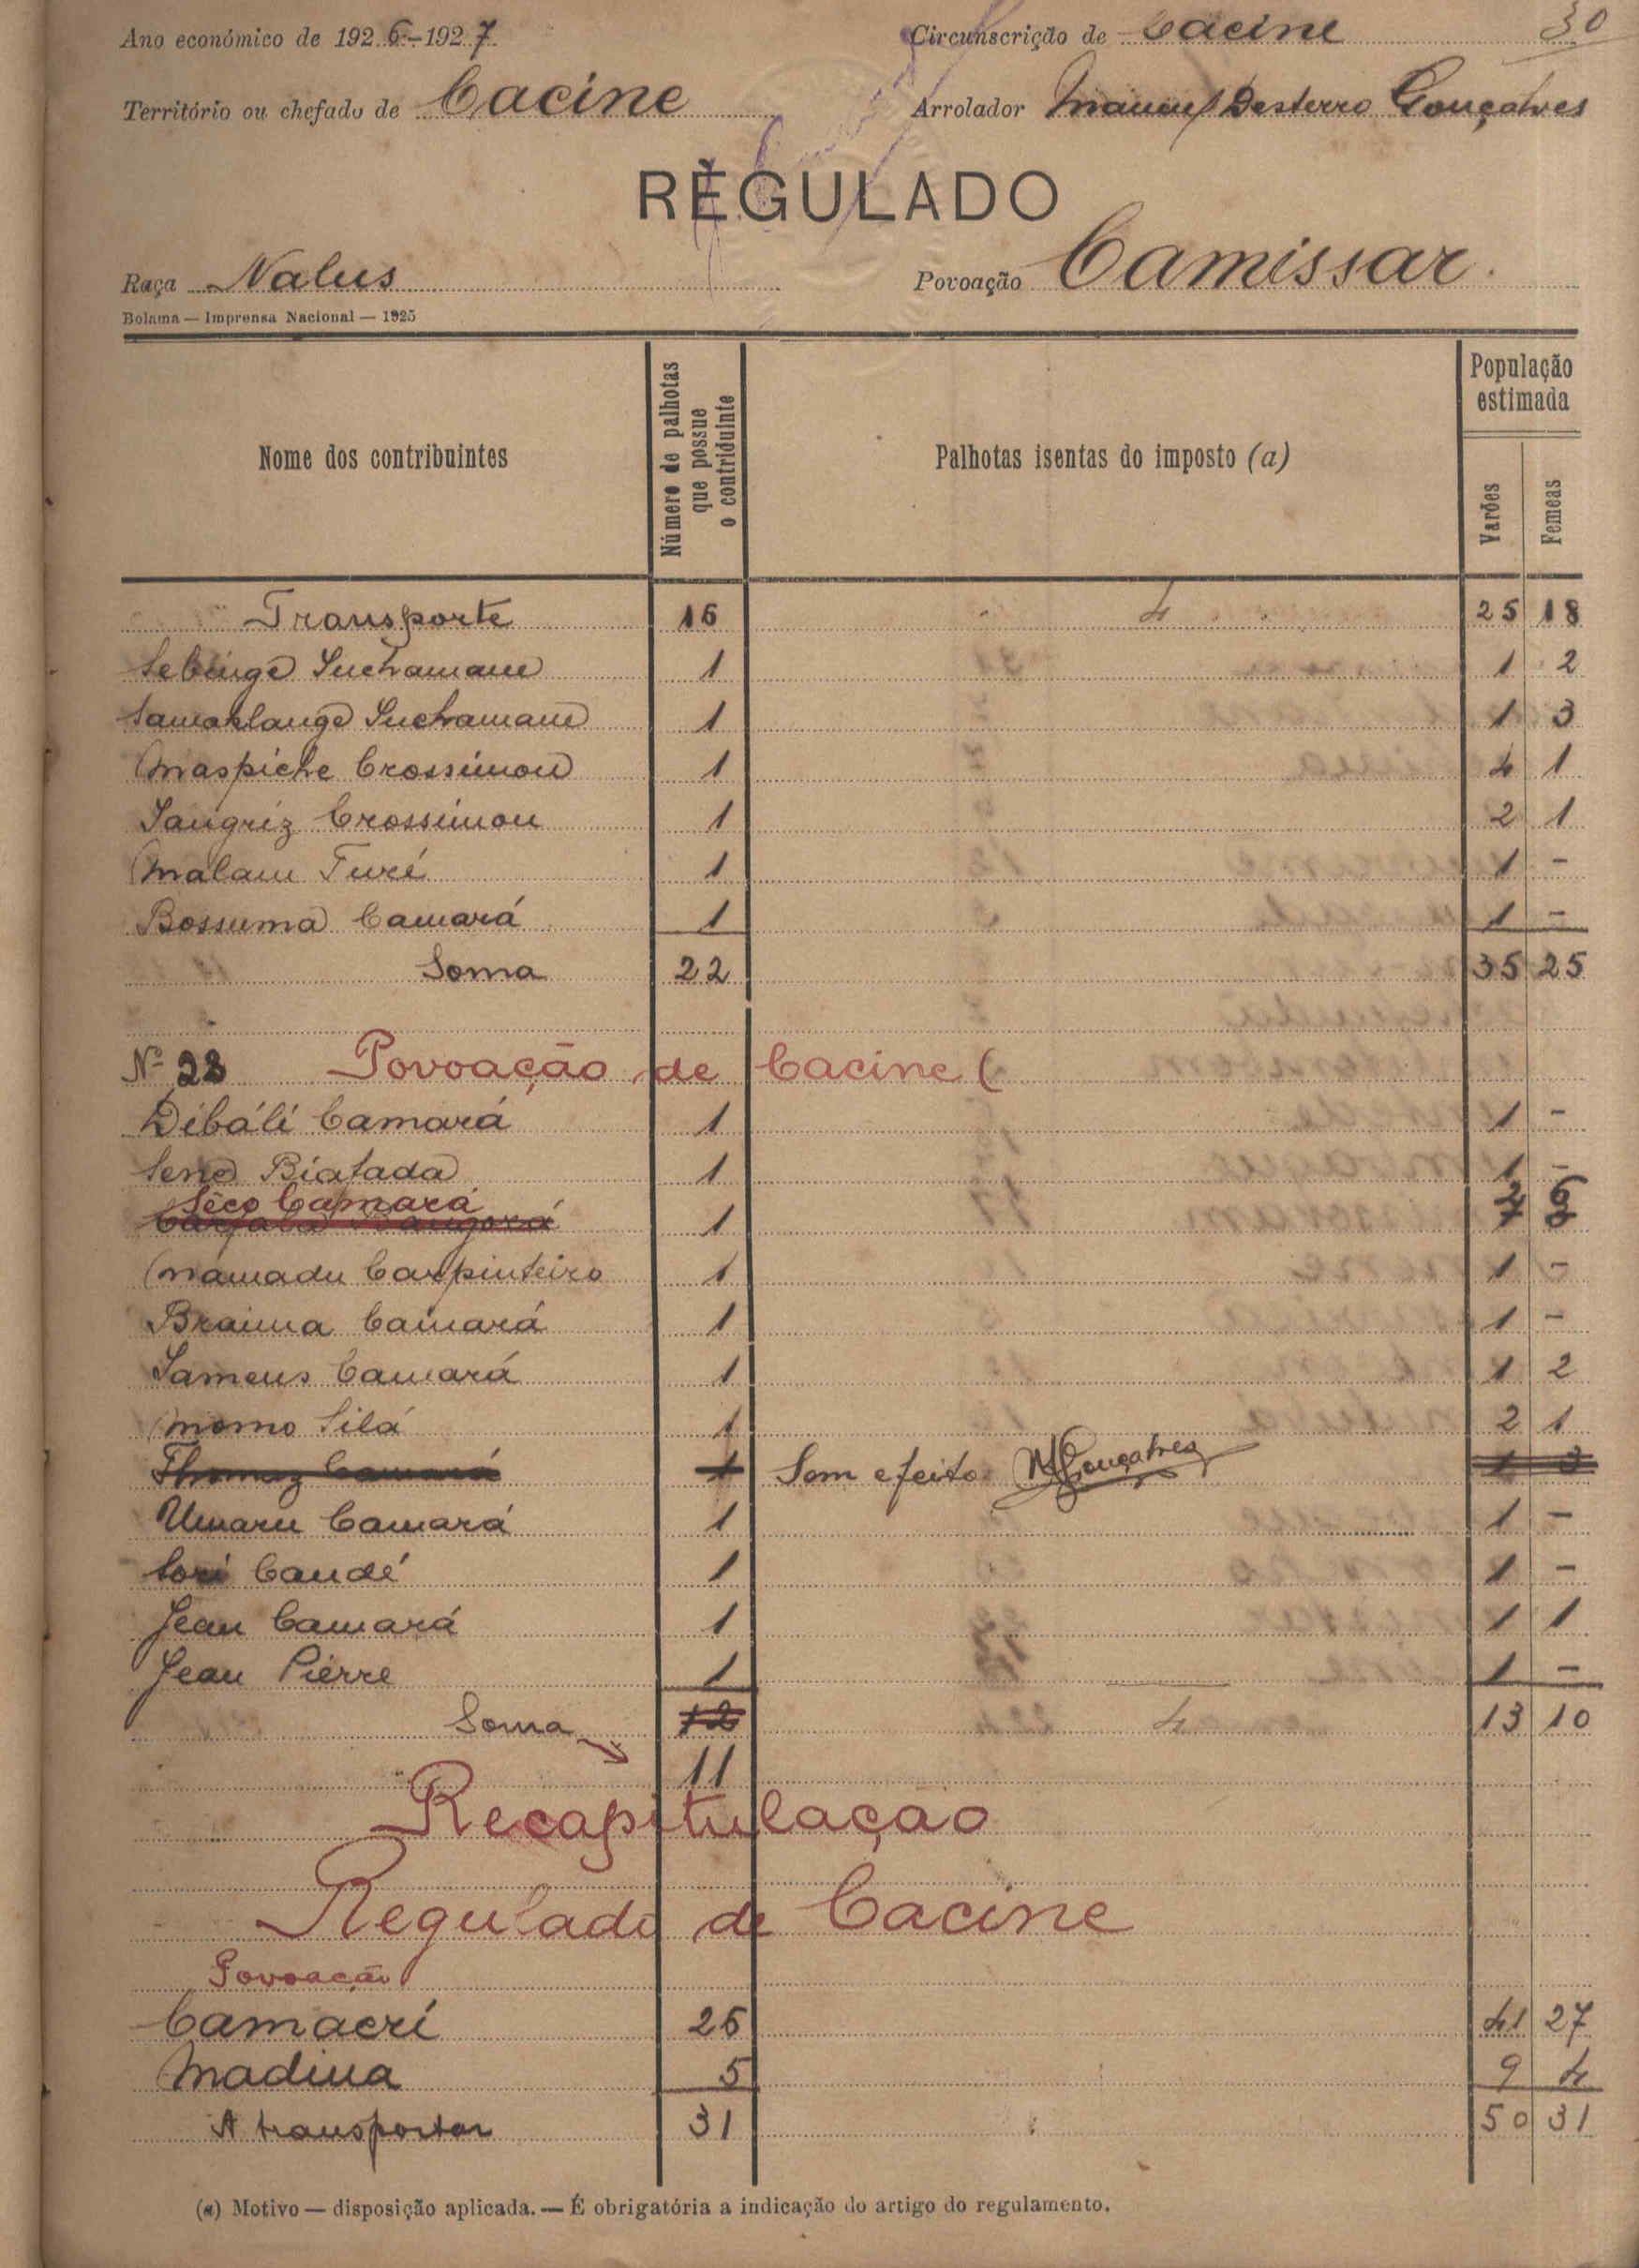 Ano económico de 1926-1927 Circunscrição de Cacine 30
Território ou chefado de Cacine Arrolador Manuel Desterro Gonçalves
REGULADO
Raça Nalus Povoação Camissar.
Bolama — Imprensa Nacional — 1925
Nome dos contribuintes
Número de palhotas que possue o contriduinte
Palhotas isentas do imposto (a)
População estimada
Varões
Femeas
Transporte 16 4 25 18
Suchamam 1 1 2
Suchamam 1 1 3
Maspiche Crossimon 1 4 1
Sangriz Crossimon 1 2 1
Malam Turé 1 1 -
Bossuma Camará 1 1 -
Soma 22 35 25
Nº 23 Povoação de Cacine (
Dibáli Camará 1 1 -
Sene Biafada 1 1 -
Sêco Camará
1 2 6
Mamadu Carpinteiro 1 1 -
Braima Camará 1 1 -
Sameus Camará 1 1 2
Momo Silá 1 2 1
Thomaz Camará 1 Sem efeito MGonçalves 1 3
Umaru Camará 1 1 -
Sori Candé 1 1 -
Jean Camará 1 1 1
Jean Pierre 1 1 -
Soma 12 4 13 10
11
Recapitulação
Regulado de Cacine
Povoação
Camacri 26 41 27
Madina 5 9 4
A transportar 31 50 31
(a) Motivo — disposição aplicada. — É obrigatória a indicação do artigo do regulamento.